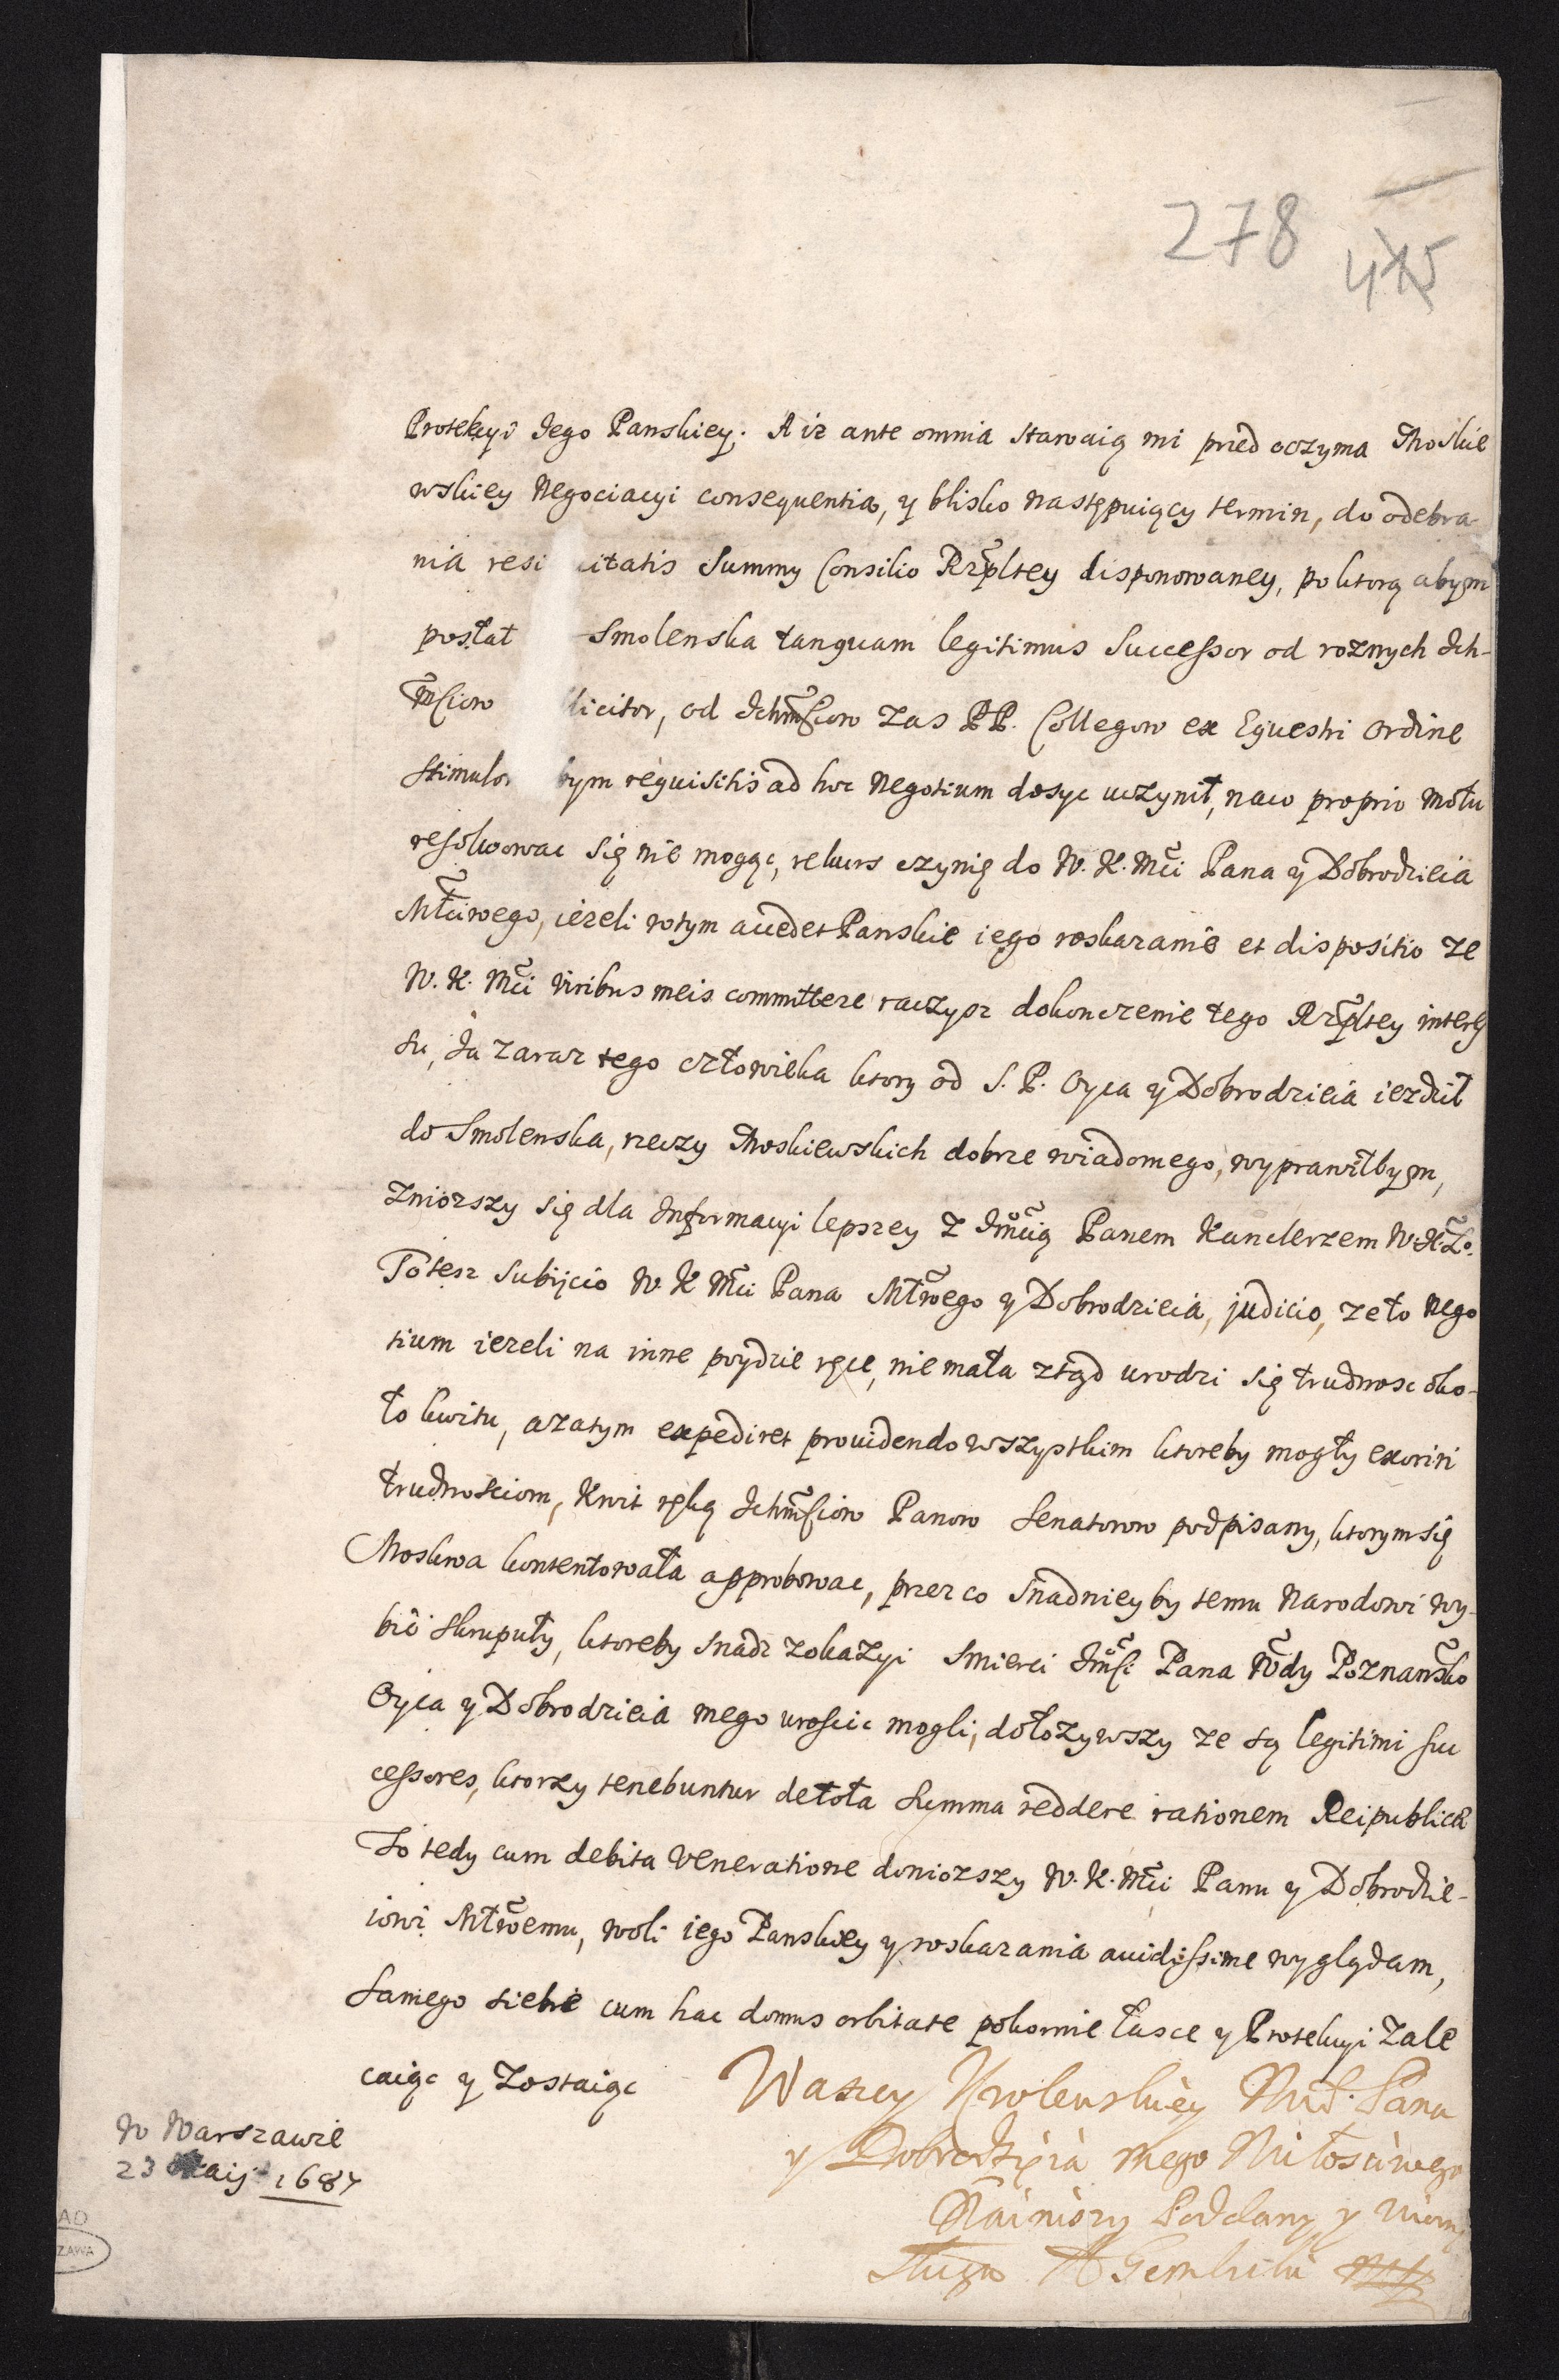 278
415
Protekcyi Jego Panskiey. A iz ante omnia stawaią mi przed oczyma Moskie
wskiey Negociacyi consequentia, y blisko następuiący termin, do odebra-
nia resi itatis Summy Consilio Rzpltey disponowaney, po ktorą abym
posłał Smolenska tanquam legitimus Successor od roznych Ich-
mściow licitor, od Ichmściow zas PP. Collegow ex Equestri ordine
stimulor bym requisitis ad hoc Negotium dosyc uczynił, na co proprio motu
resolwowac się nie mogąc, rekurs czynię do W. K. Mci Pana y Dobrodzieia
Młciwego, iezeli wtym accedet Panskie iego roskazanie et dispositio ze
W. K. Mci viribus meis committere raczysz dokonczenie tego Rzpltey interes
su, Ja zaraz tego człowieka ktory od S. P. Oyca y Dobrodzieia iezdził
do Smolenska, rzeczy Moskiewskich dobrze wiadomego, wyprawiłbym,
Zniozszy się dla Informacyi lepszey z Jmcią Panem Kanclerzem W. X. Lo.
To tesz subijcio W. K. Mci Pana Młwego y Dobrodzieia, judicio, ze to Nego
tium iezeli na inne poydzie ręce, nie mała ztąd urodzi się trudnosc oko-
ło kwitu, azatym expediret prouidendo wszystkim ktoreby mogły exoriri
trudnosciom, Kwit ręką Ichmściow Panow Senatorow podpisany, ktorym się
Moskwa kontentowała approbowac, przez co snadniey by temu Narodowi wy-
bić skrupuły, ktoreby snadz zokazyi Smierci Jmści Pana Wdy Poznansko
Oyca y Dobrodzieia mego urościc mogli, dołozywszy ze są legitimi suc
cessores, ktorzy tenebuntur de tota summa reddere rationem Reipublicæ
To tedy cum debita veneratione doniozszy W. K. Mci Panu y Dobrodzie-
iowi Młwemu, woli iego Panskiey y roskazania auidissime wyglądam,
Samego siebie cum hac domus orbitate pokornie łasce y Protekcyi zale
caiąc y Zostaiąc
Waszey Krolewskiey Mści. Pana
y Dobrodzieia mego Miłosciwego
Nainizszy Poddany y wierny
Sługa A Gembicki
W Warszawie
23 Maij 1687
AD
ZAWA